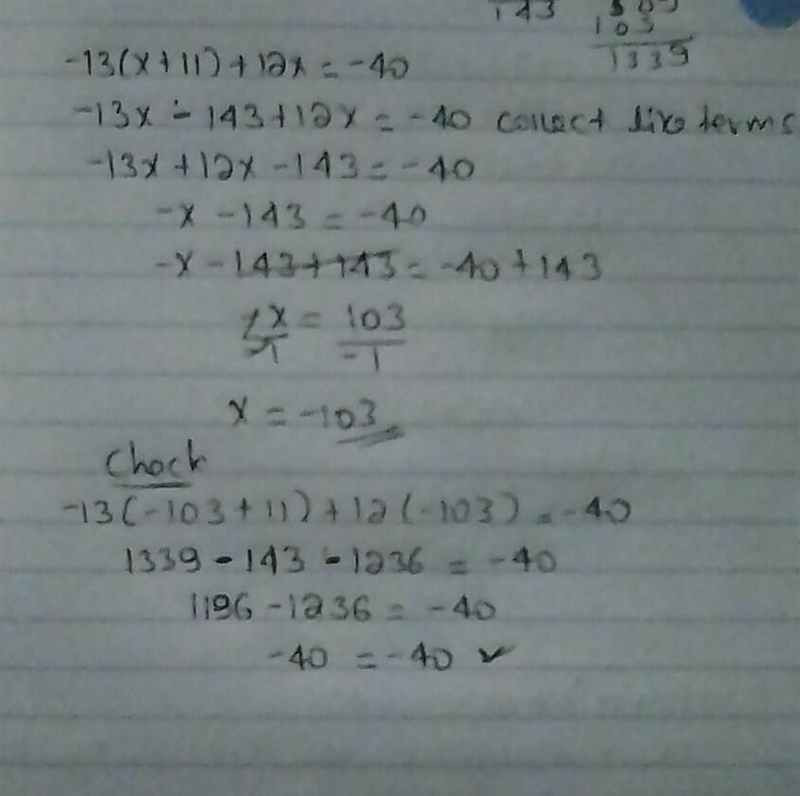 143
103
1339
-13(x+11)+12x=-40
-13x-143+12x=-40 collect like terms
-13x+12x-143=-40
-x-143=-40
-x-143+143=-40+143
-x/-1=103/-1
x=-103
Check
-13(-103+11)+12(-103)=-40
1339-143-1236=-40
1196-1236=-40
-40=-40 ✓